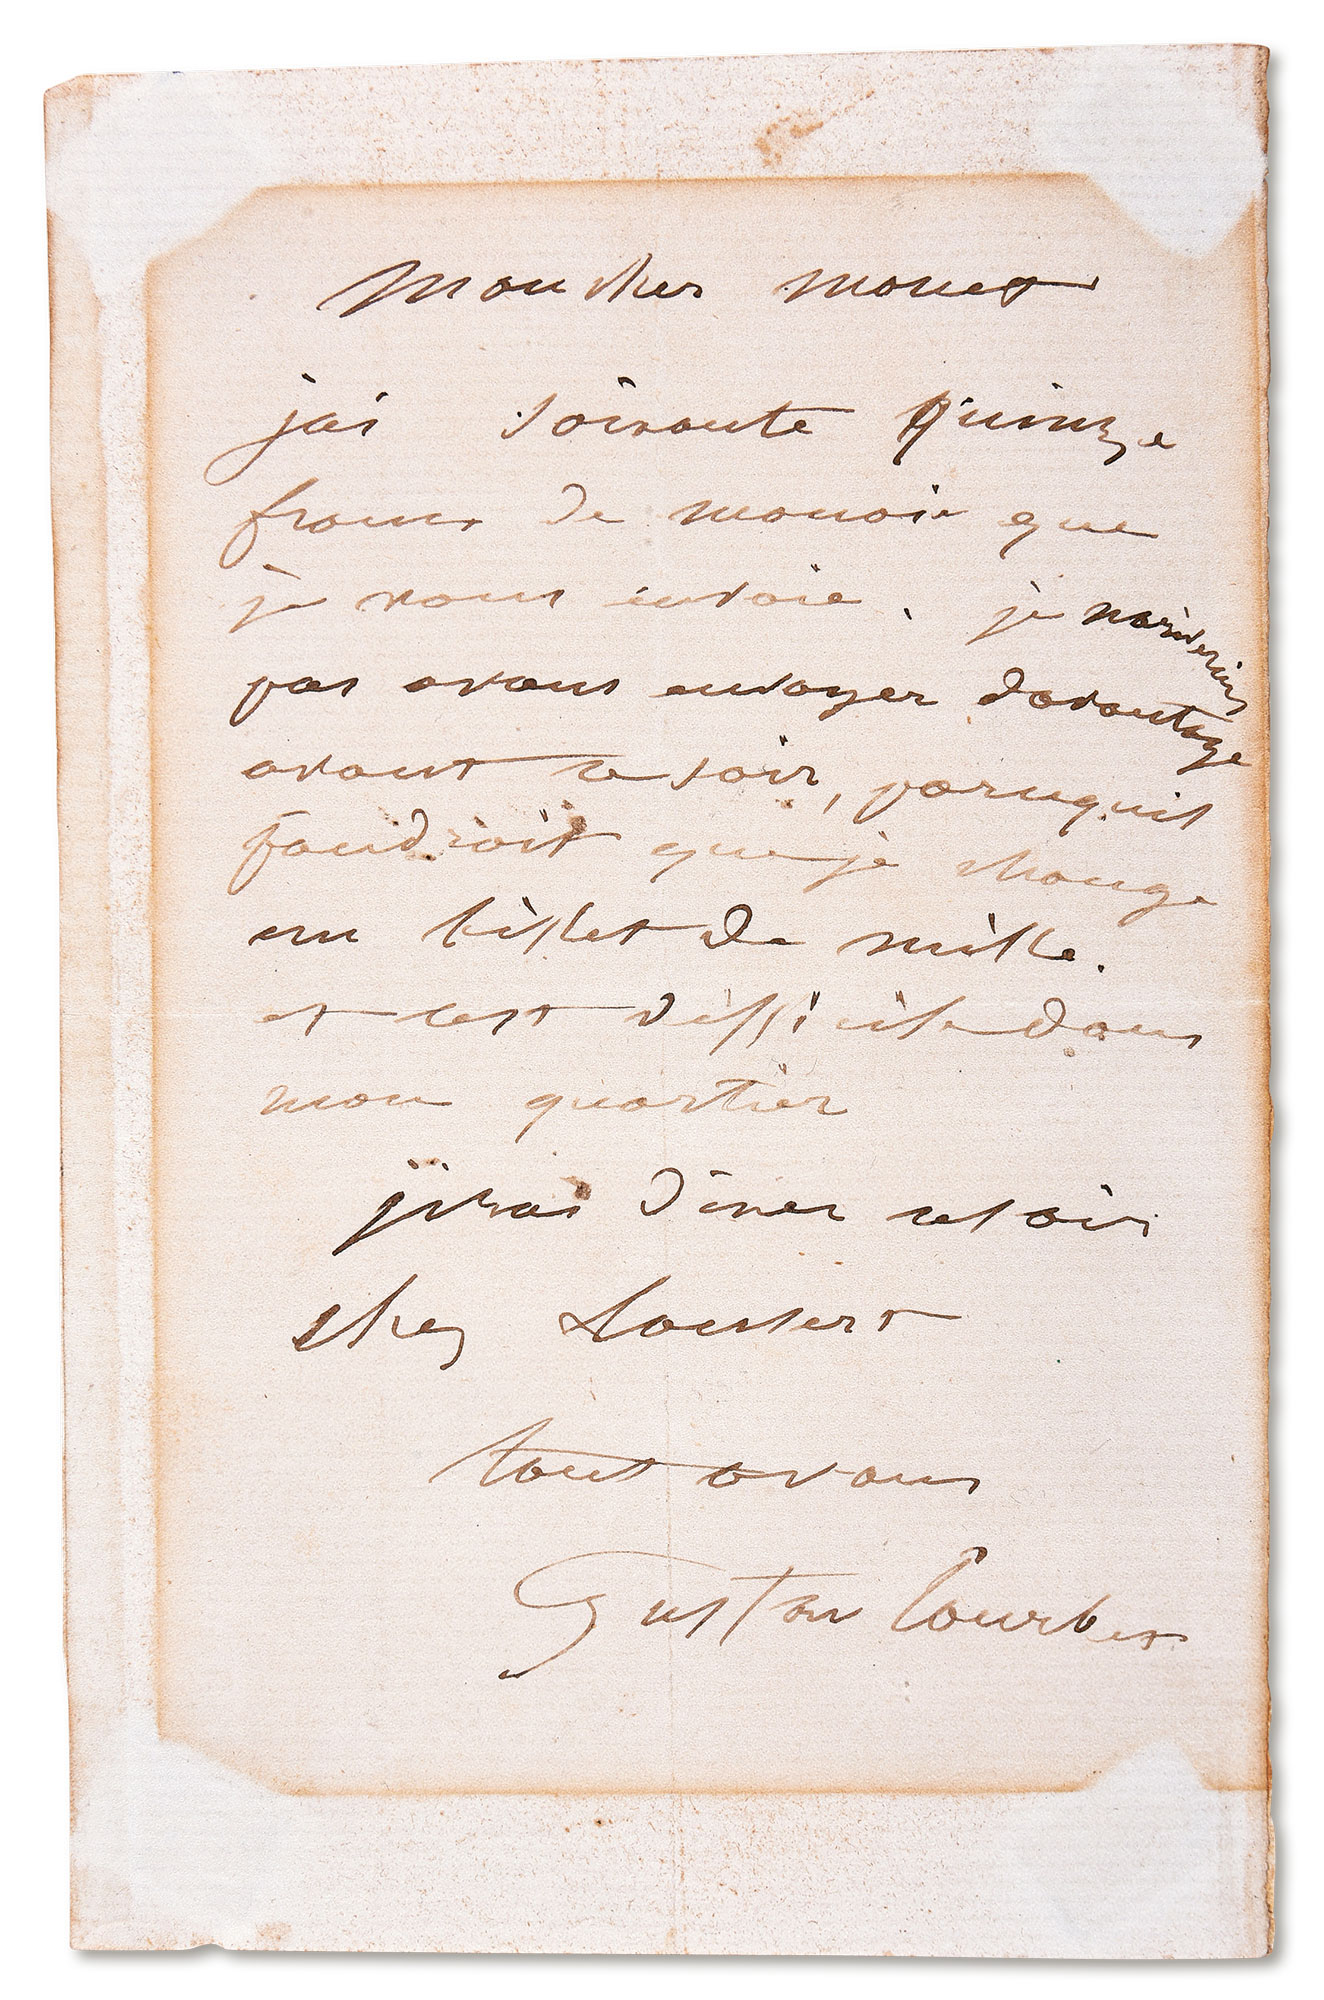 Mon cher monet
jai soixante quinze
francs de monoie que
je vous envoie. je
pas avous envoyer davantage
avant ce soir, parcequil
faudroit que je change
un billet de mille.
et cest difficile dans
mon quartier
j'irai diner ce soir
chez
tout a vous
Gustave Courbet